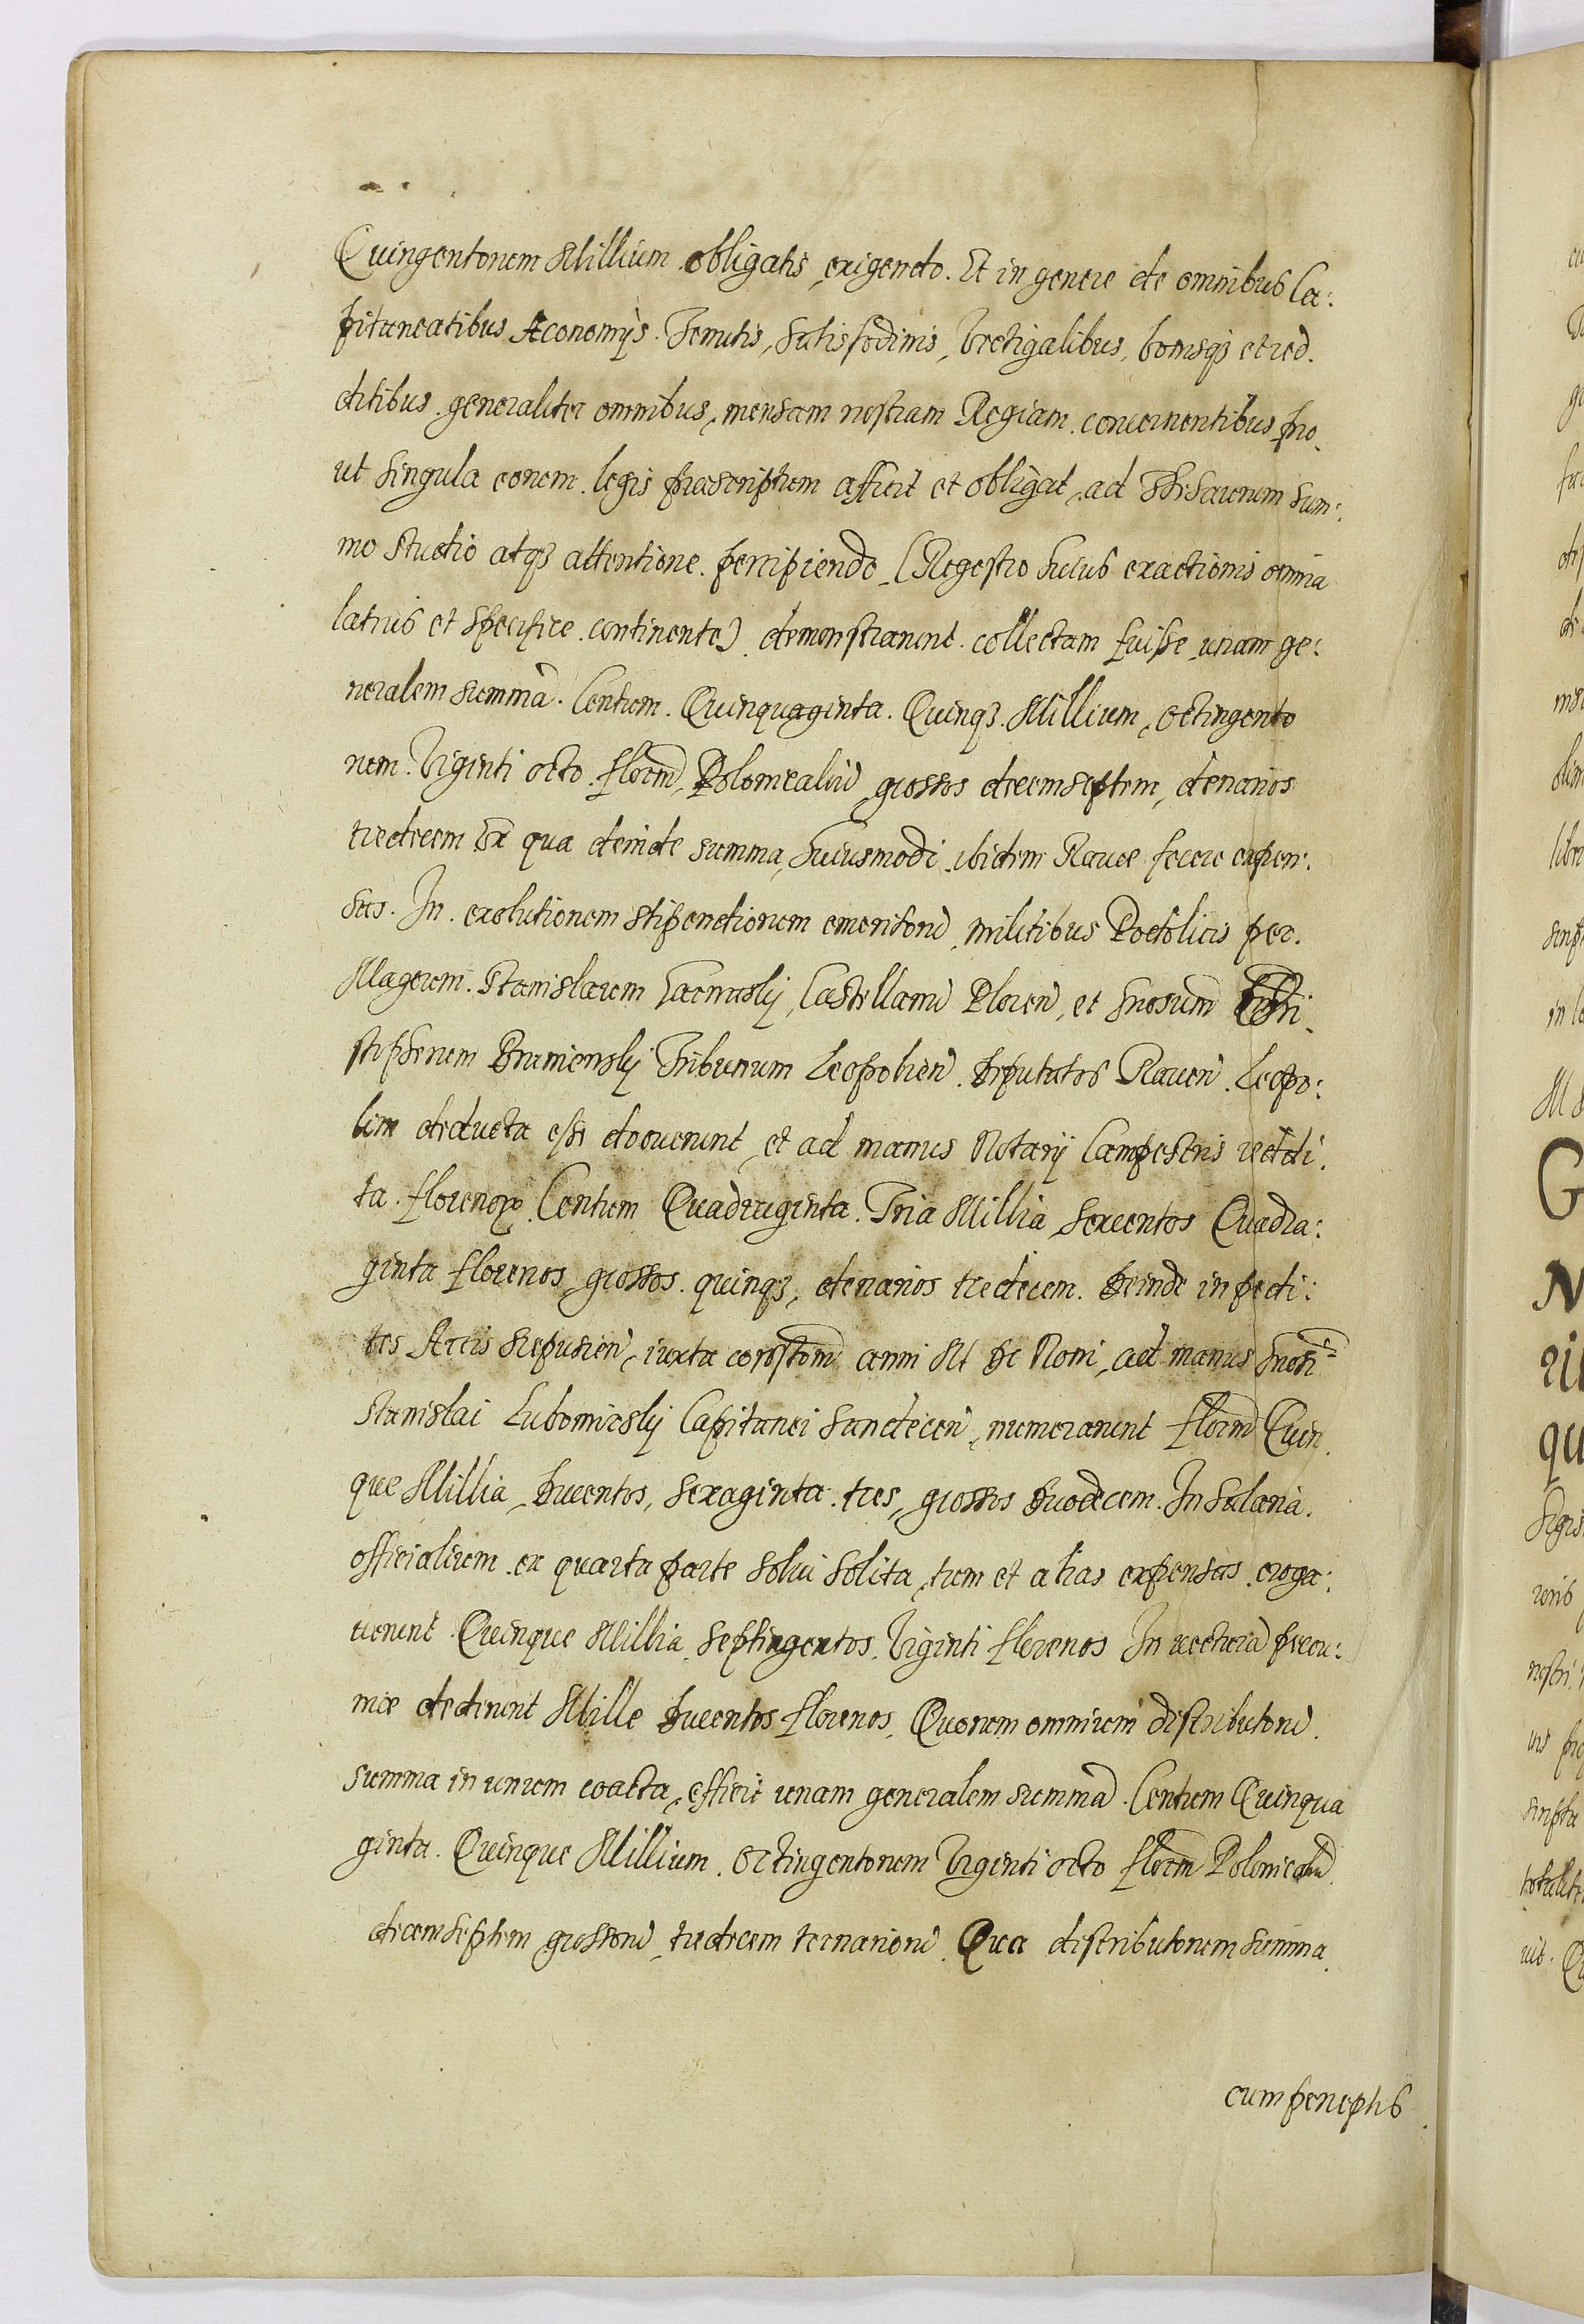 Quingentorum Millium obligatis, exigendo. Et in genere de omnibus Ca:
pitaneatibus Æconomijs. Tenutis, Salisfodinis, Vectigalibus, bonisq3 et red.
ditibus generaliter omnibus, mensam nostram Regiam concernentibus pro
ut singula eorum legis præscriptum afficit et obligat, ad Thesaurum sum:
mo studio atq3 attentione percipiendo (Regestro huius exactionis omnia
latius et specifice continente) demonstrarunt collectam fuisse, unam ge:
neralem summã. Centum. Quinquaginta. Quinq3. Millium, octingento
rum. Viginti octo floren̄, Polonicaliũ grossos decemseptem, denarios
tredecem Ex qua deinde summa, huiusmodi ibidem Rauæ fecere expen:
sas. In exolutionem stipendiorum emeritorũ, militibus Podolicis per.
Magcum. Stanislaum Garwasky, Castellanũ Plocen̄, et Gnosum Chri
stophorum Braniensky Tribunum Leopolien̄ Deputatos Rauen̄. Leopo:
lim deducta esse docuerunt, et ad manus Notarij Campestris reddi.
ta. florenoꝝ Centum Quadraginta. Tria Millia sexcentos Quadra:
ginta florenos, grossos. quinq3, denarios tredecem. Deinde in pedi:
tes Arcis Scepusien̄, iuxta con̄stom̄ anni M Dc Noni, ad manus Gnosi
Stanislai Lubomirsky Capitanei Sandecen̄, numerarunt floren̄ Quin
que Millia, Ducentos, sexaginta. tres, grossos Duodecem. In Salaria.
officialium ex quarta parte solui solita, tum et alias expensas. eroga:
uerunt Quinque Millia, septingentos. Viginti florenos In vecturã pecu:
niæ dederunt Mille Ducentos florenos. Quorum omnium distributorũ.
summa in unum coacta, efficit unam generalem summã. Centum Quinqua
ginta. Quinque Millium. Octingentorum Viginti octo floren̄ Polonicaliũ.
decemseptem grossorũ, tredecem ternariorũ. Qua distributorum summa
cum perceptis